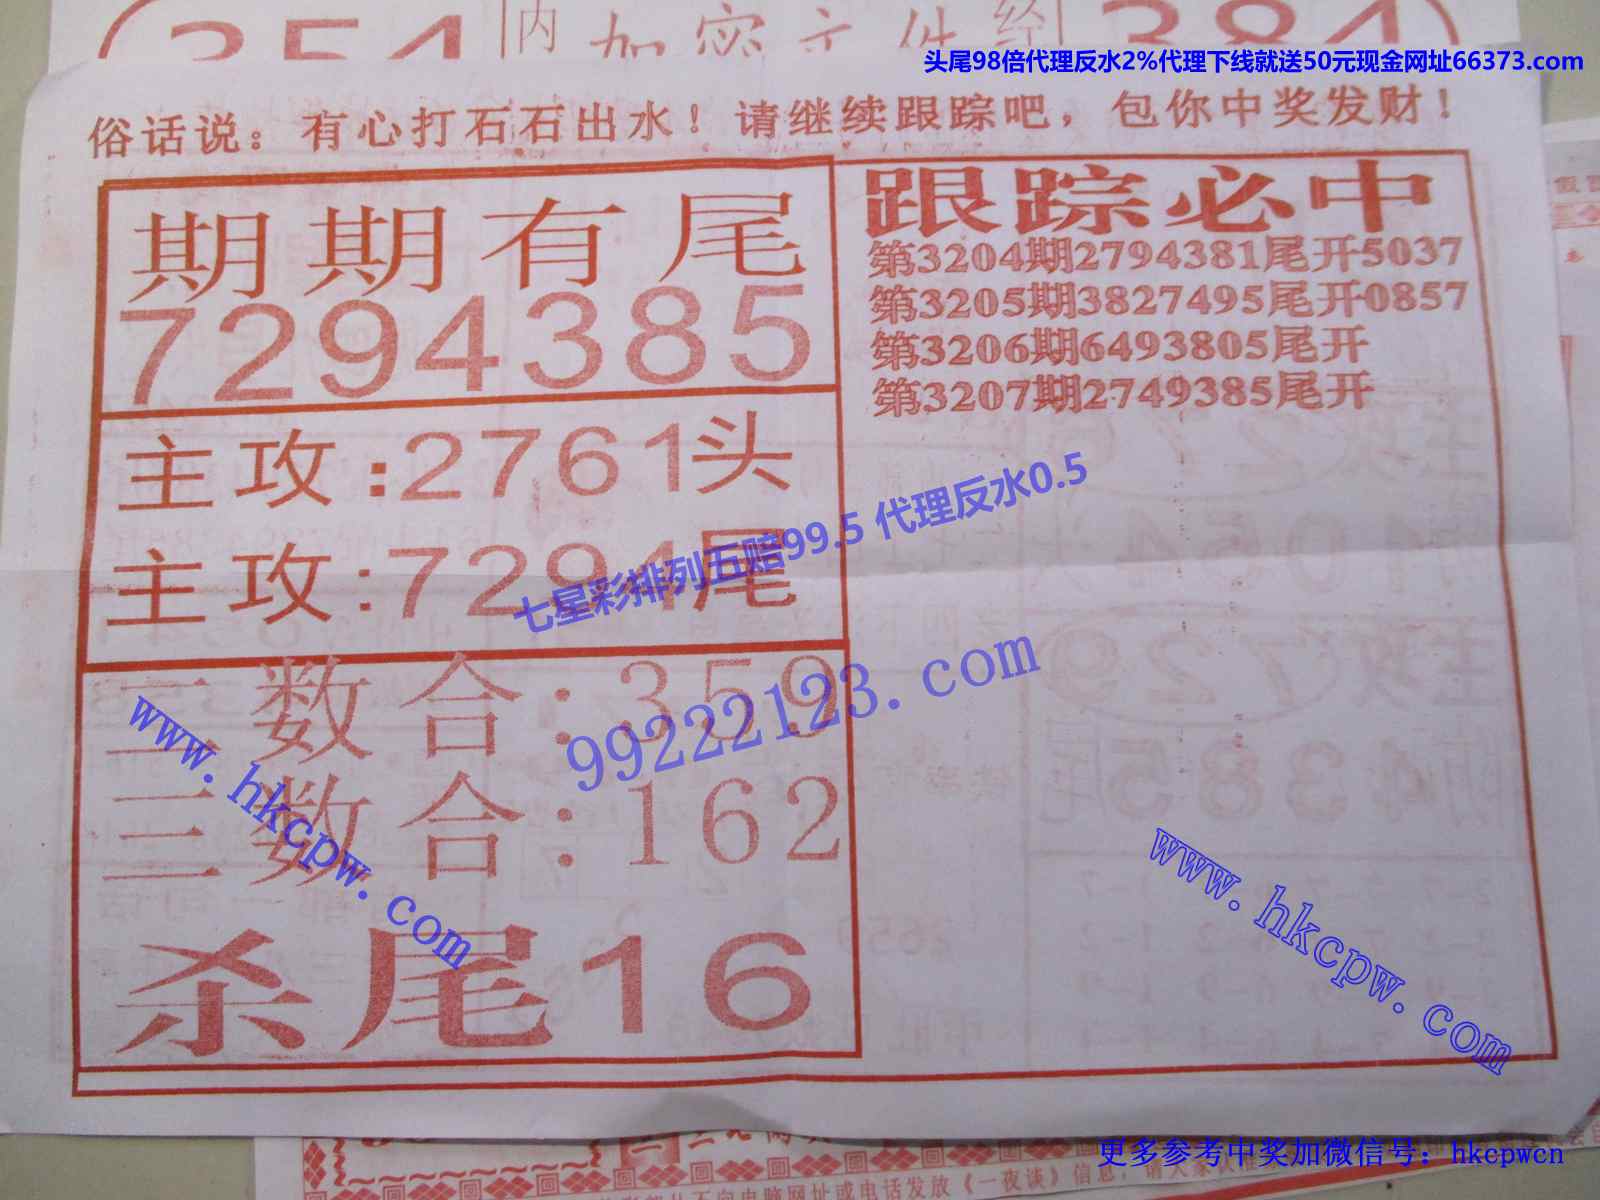 内 加密文件 经
头尾98倍代理反水2%代理下线就送50元现金网址66373.com
俗话说：有心打石石出水！请继续跟踪吧，包你中奖发财！
期期有尾
7294385
主攻:2761头
主攻:7294尾
二数合:359
三数合:162
杀尾16
跟踪必中
第3204期2794381尾开5037
第3205期3827495尾开0857
第3206期6493805尾开
第3207期2749385尾开
七星彩排列五赔99.5 代理反水0.5
99222123.com
www.hkcpw.com
www.hkcpw.com
更多参考中奖加微信号：hkcpwcn
电脑网址或电话发放《一夜谈》信息，请大家认准